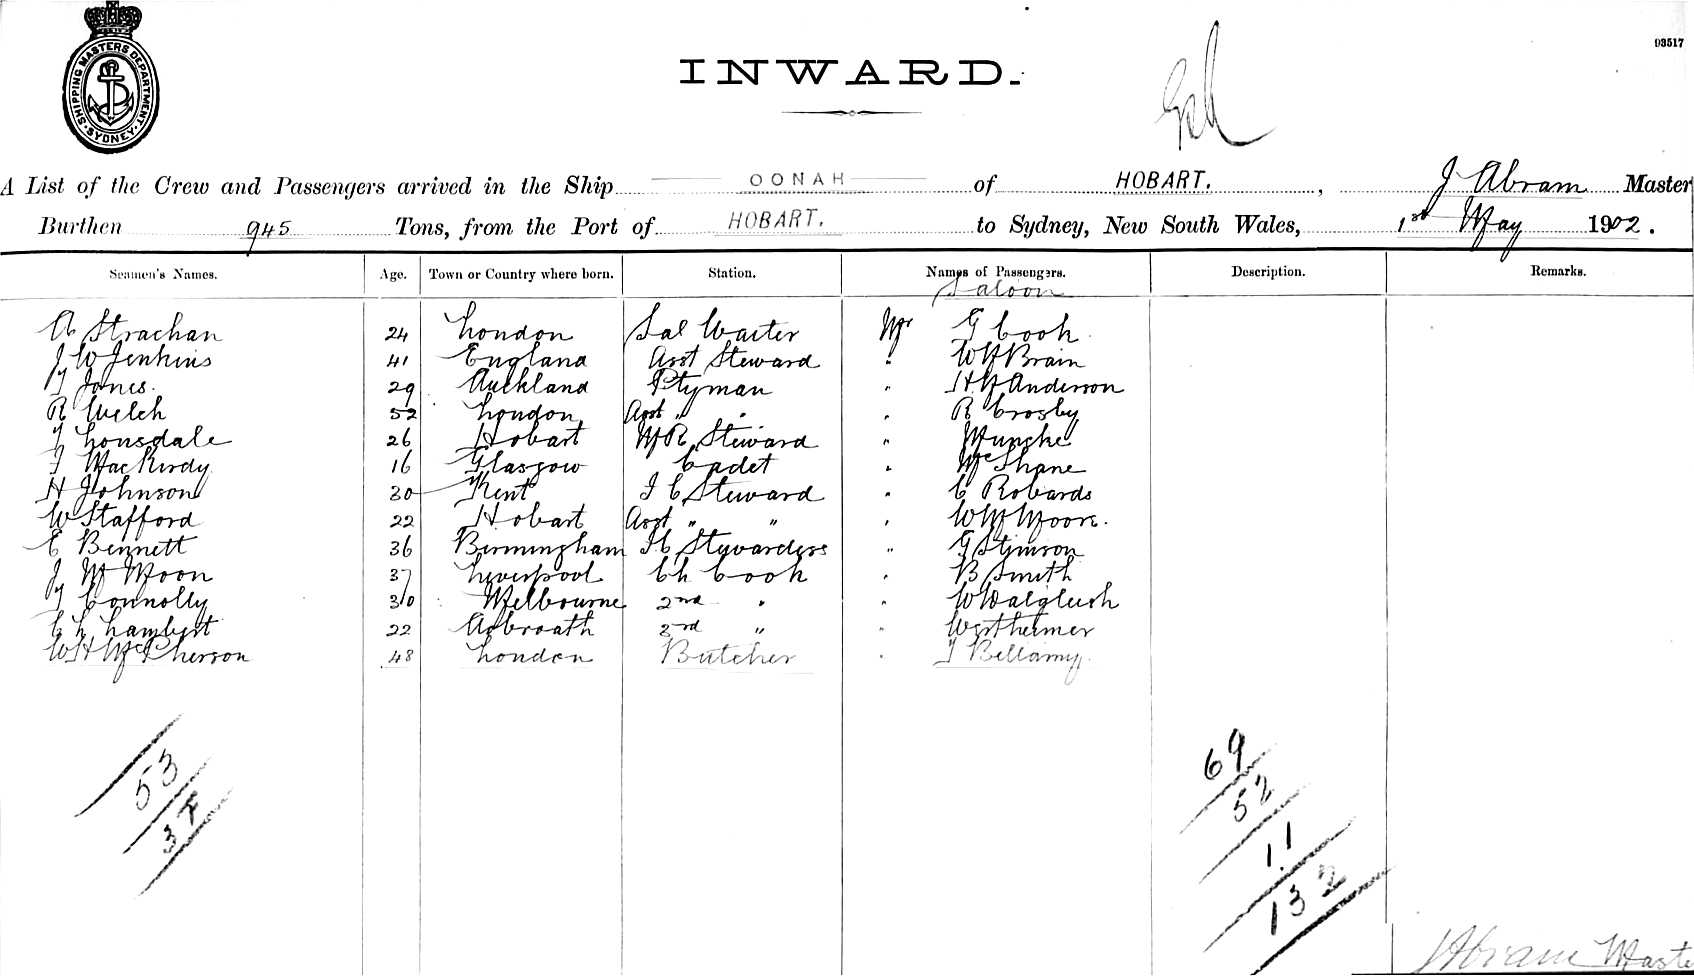 SHIPPING MASTERS DEPARTMENT. SYDNEY
93517
INWARD.
A List of the Crew and Passengers arrived in the Ship OONAH of HOBART. , J Abram Master
Burthen 945 Tons, from the Port of HOBART. to Sydney, New South Wales, 1st May 1902.
Seamen's Names. Age. Town or Country where born. Station. Names of Passengers. Description. Remarks.
Saloon
A Strachan 24 London Sal Waiter Mr G Cook
J W Jenkins 41 England Asst Steward " W H Brain
T Jones. 29 Auckland Ptyman " H H Anderson
R Welch 52 London Asst " " " R Crosby
T Lonsdale 26 Hobart M R Steward " Munche
T MacKirdy 16 Glasgow Cadet " McShane
H Johnson 30 Kent F C Steward " C Robards
W Stafford 22 Hobart Asst " " " W M Moore.
E Bennett 36 Birmingham F C Stewardess " G Stimson
J M Moon 37 Liverpool Ch Cook " B Smith
J Connolly 30 Melbourne 2nd " " W Dalgleish
C L Lambert 22 Arbroath 3rd " " Wertheimer
W H McPherson 48 London Butcher " T Bellamy.
53
37
69
52
11
132
J Abram Maste